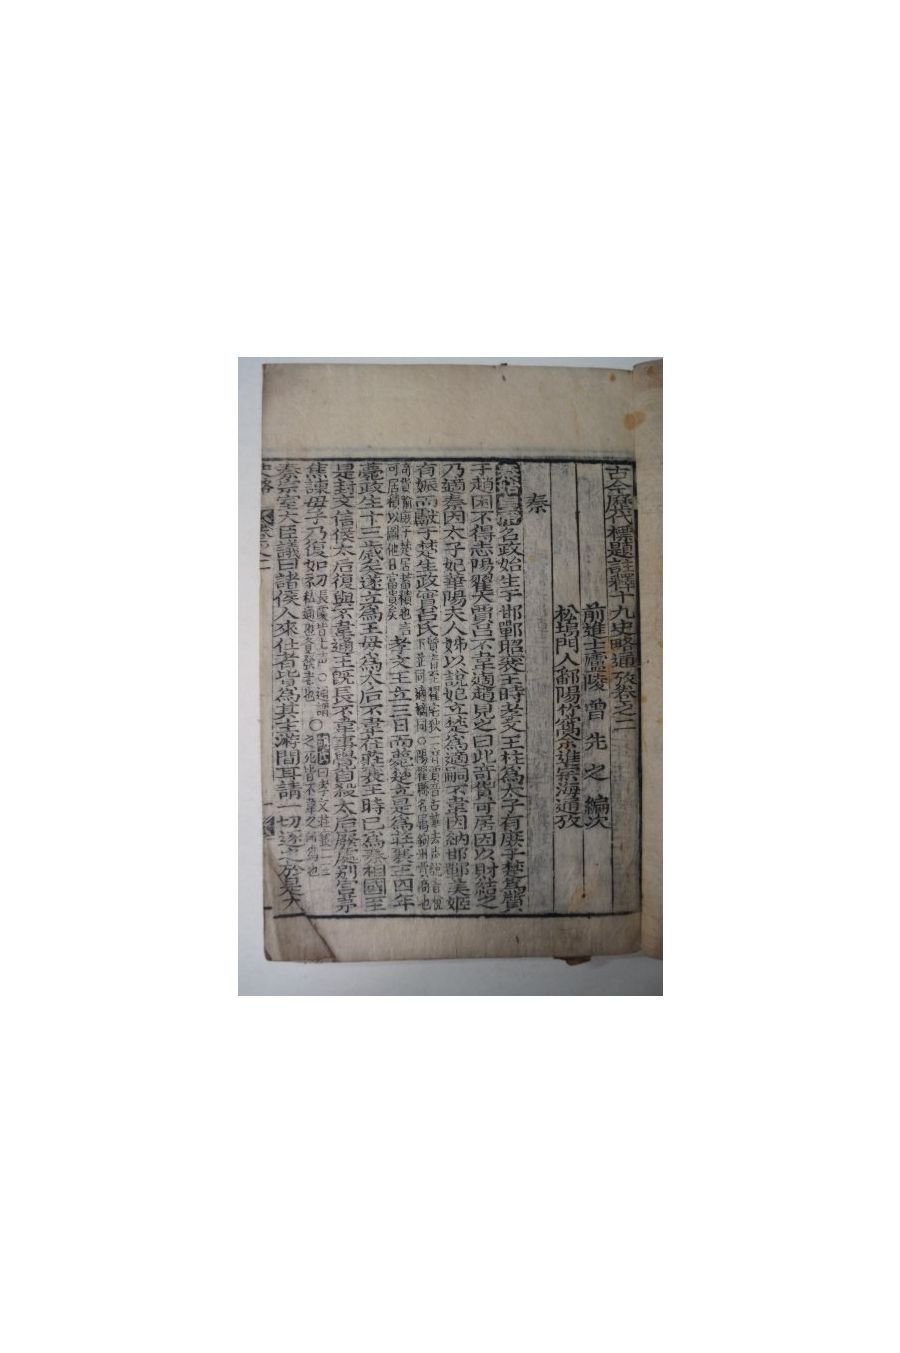 古今歷代標題註釋十九史略通攷卷之二
前進士廬陵曾先之編次
松塢門人鄱陽竹窩余進宗海通攷
秦
秦始皇帝名政始生于邯鄲昭襄王時孝文王柱爲太子有庶子楚爲質
于趙困不得志陽翟大賈呂不韋適趙見之曰此奇貨可居因以財結之
乃適秦因太子妃華陽夫人姊以說妃立楚爲適嗣不韋因納邯鄲美姬
有娠而獻于楚生政實呂氏
孝文王立三日而薨楚立是爲莊襄王四年
薨政生十三歲矣遂立爲王母爲太后不韋在莊襄王時已爲秦相國至
是封文信侯太后復與不韋通王旣長不韋事覺自殺太后廢處別宮茅
焦諫母子乃復如初
秦宗室大臣議曰諸侯人來仕者皆爲其主游間耳請一切逐之於是大